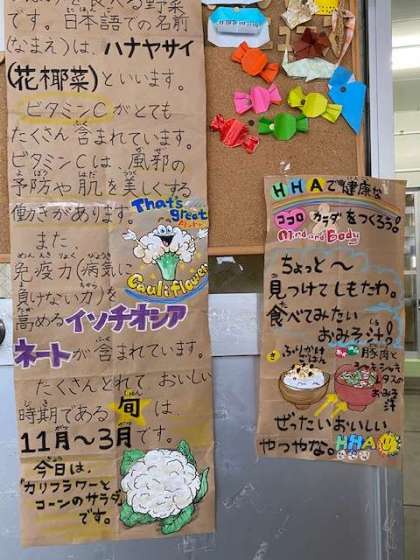 です。日本語での名前
(なまえ)は、ハナヤサイ
(花椰菜)といいます。
ビタミンCがとても
たくさん含まれています。
ビタミンCは、風邪の
予防や肌を美しくする
働きがあります。
That's great
また、
Cauliflower
免疫力(病気に
負けない力)を
高めるイソチオシア
ネートが含まれています。
たくさんとれて おいしい
時期である 旬 は、
11月〜3月です。
今日は、
"カリフラワーと
コーンのサラダ"
です。
HHAで健康な
ココロ カラダをつくろう!
Mind and Body
ちょっと〜
見つけてしもたわ。
食べてみたい
おみそ汁!
ぶりかけ
ごはん
豚肉と
シャキシャキ
レタスの
おみそ
汁
ぜったいおいしい
やつやな。HHA